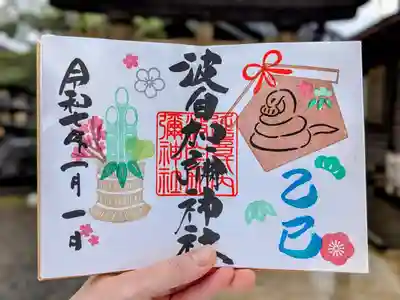 乙巳
波自加彌神社
延喜式内
波自加
彌神社
令和七年一月一日